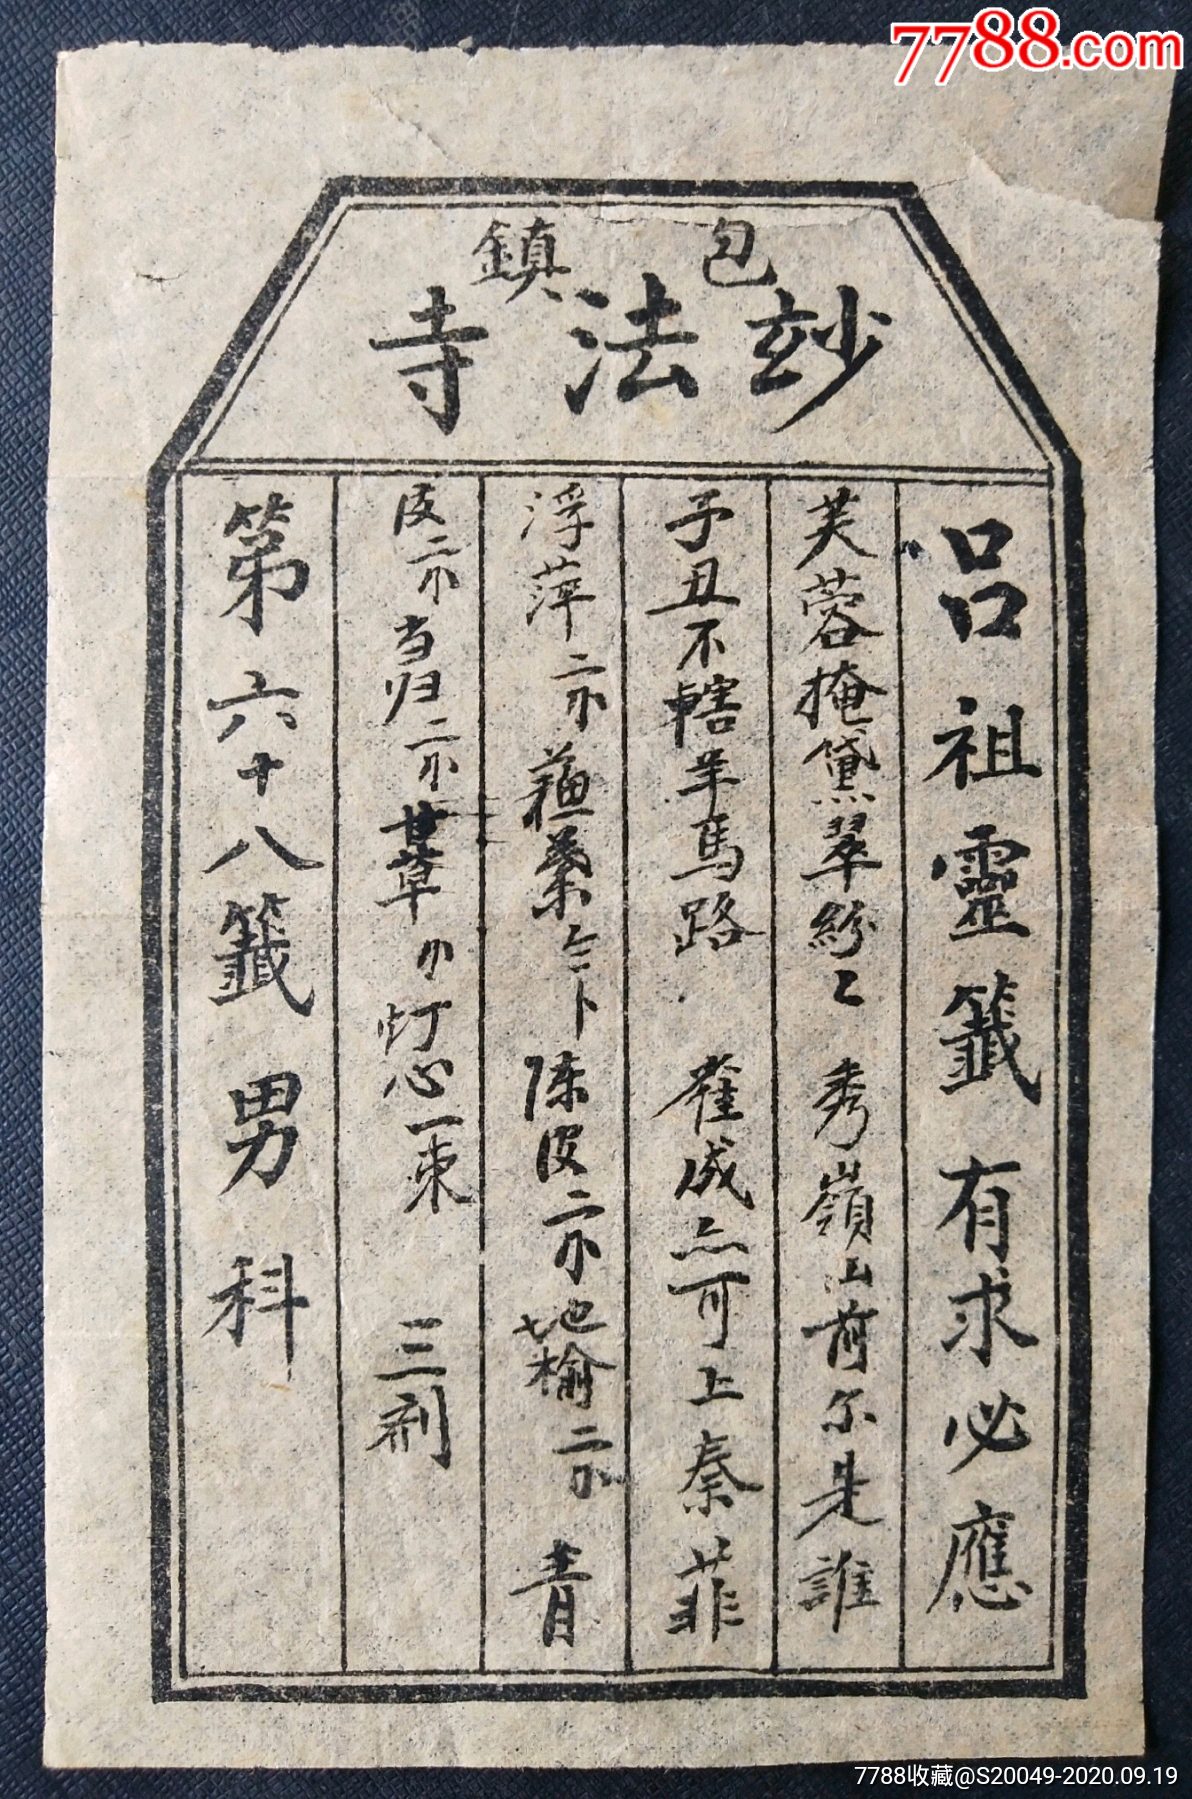 7788.com
包鎮
玅法寺
呂祖靈籤有求必應
芙蓉掩黛翠紛〻 秀嶺山前尔是誰
子丑不轄羊馬路 崔成亦可上秦菲
浮萍二亦 蘓葉 卜 陈皮二亦 地榆二亦 青
皮二亦 当归二亦 甘草 灯心一束 三剂
第六十八籤男科
7788收藏@S20049-2020.09.19